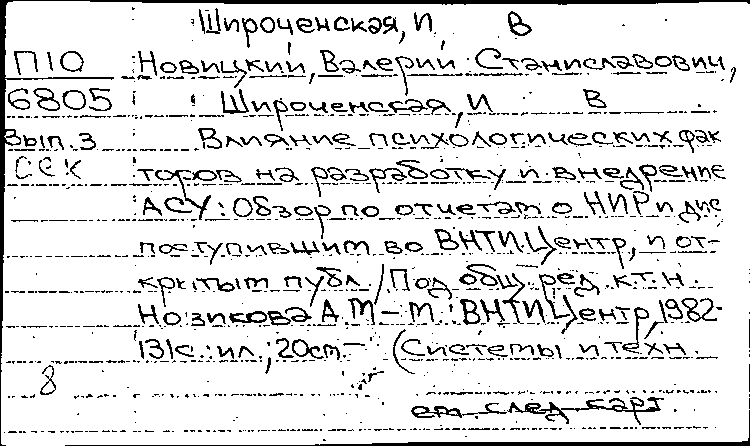 Широченская, И. В
П10 Новицкий, Валерий Станиславович,
6805 Широченская, И В
Вып. 3 Влияние психологических фак
ССК торов на разработку и внедрение
АСУ: Обзор по отчетам о НИР и дис
поступившим во ВНТИЦентр, и от-
крытым публ / Под общ. ред. к.т.н.
Новикова А.М - М.: ВНТИЦентр, 1982-
131с.: ил.; 20см. - (Системы и техн.
8
см след карт.